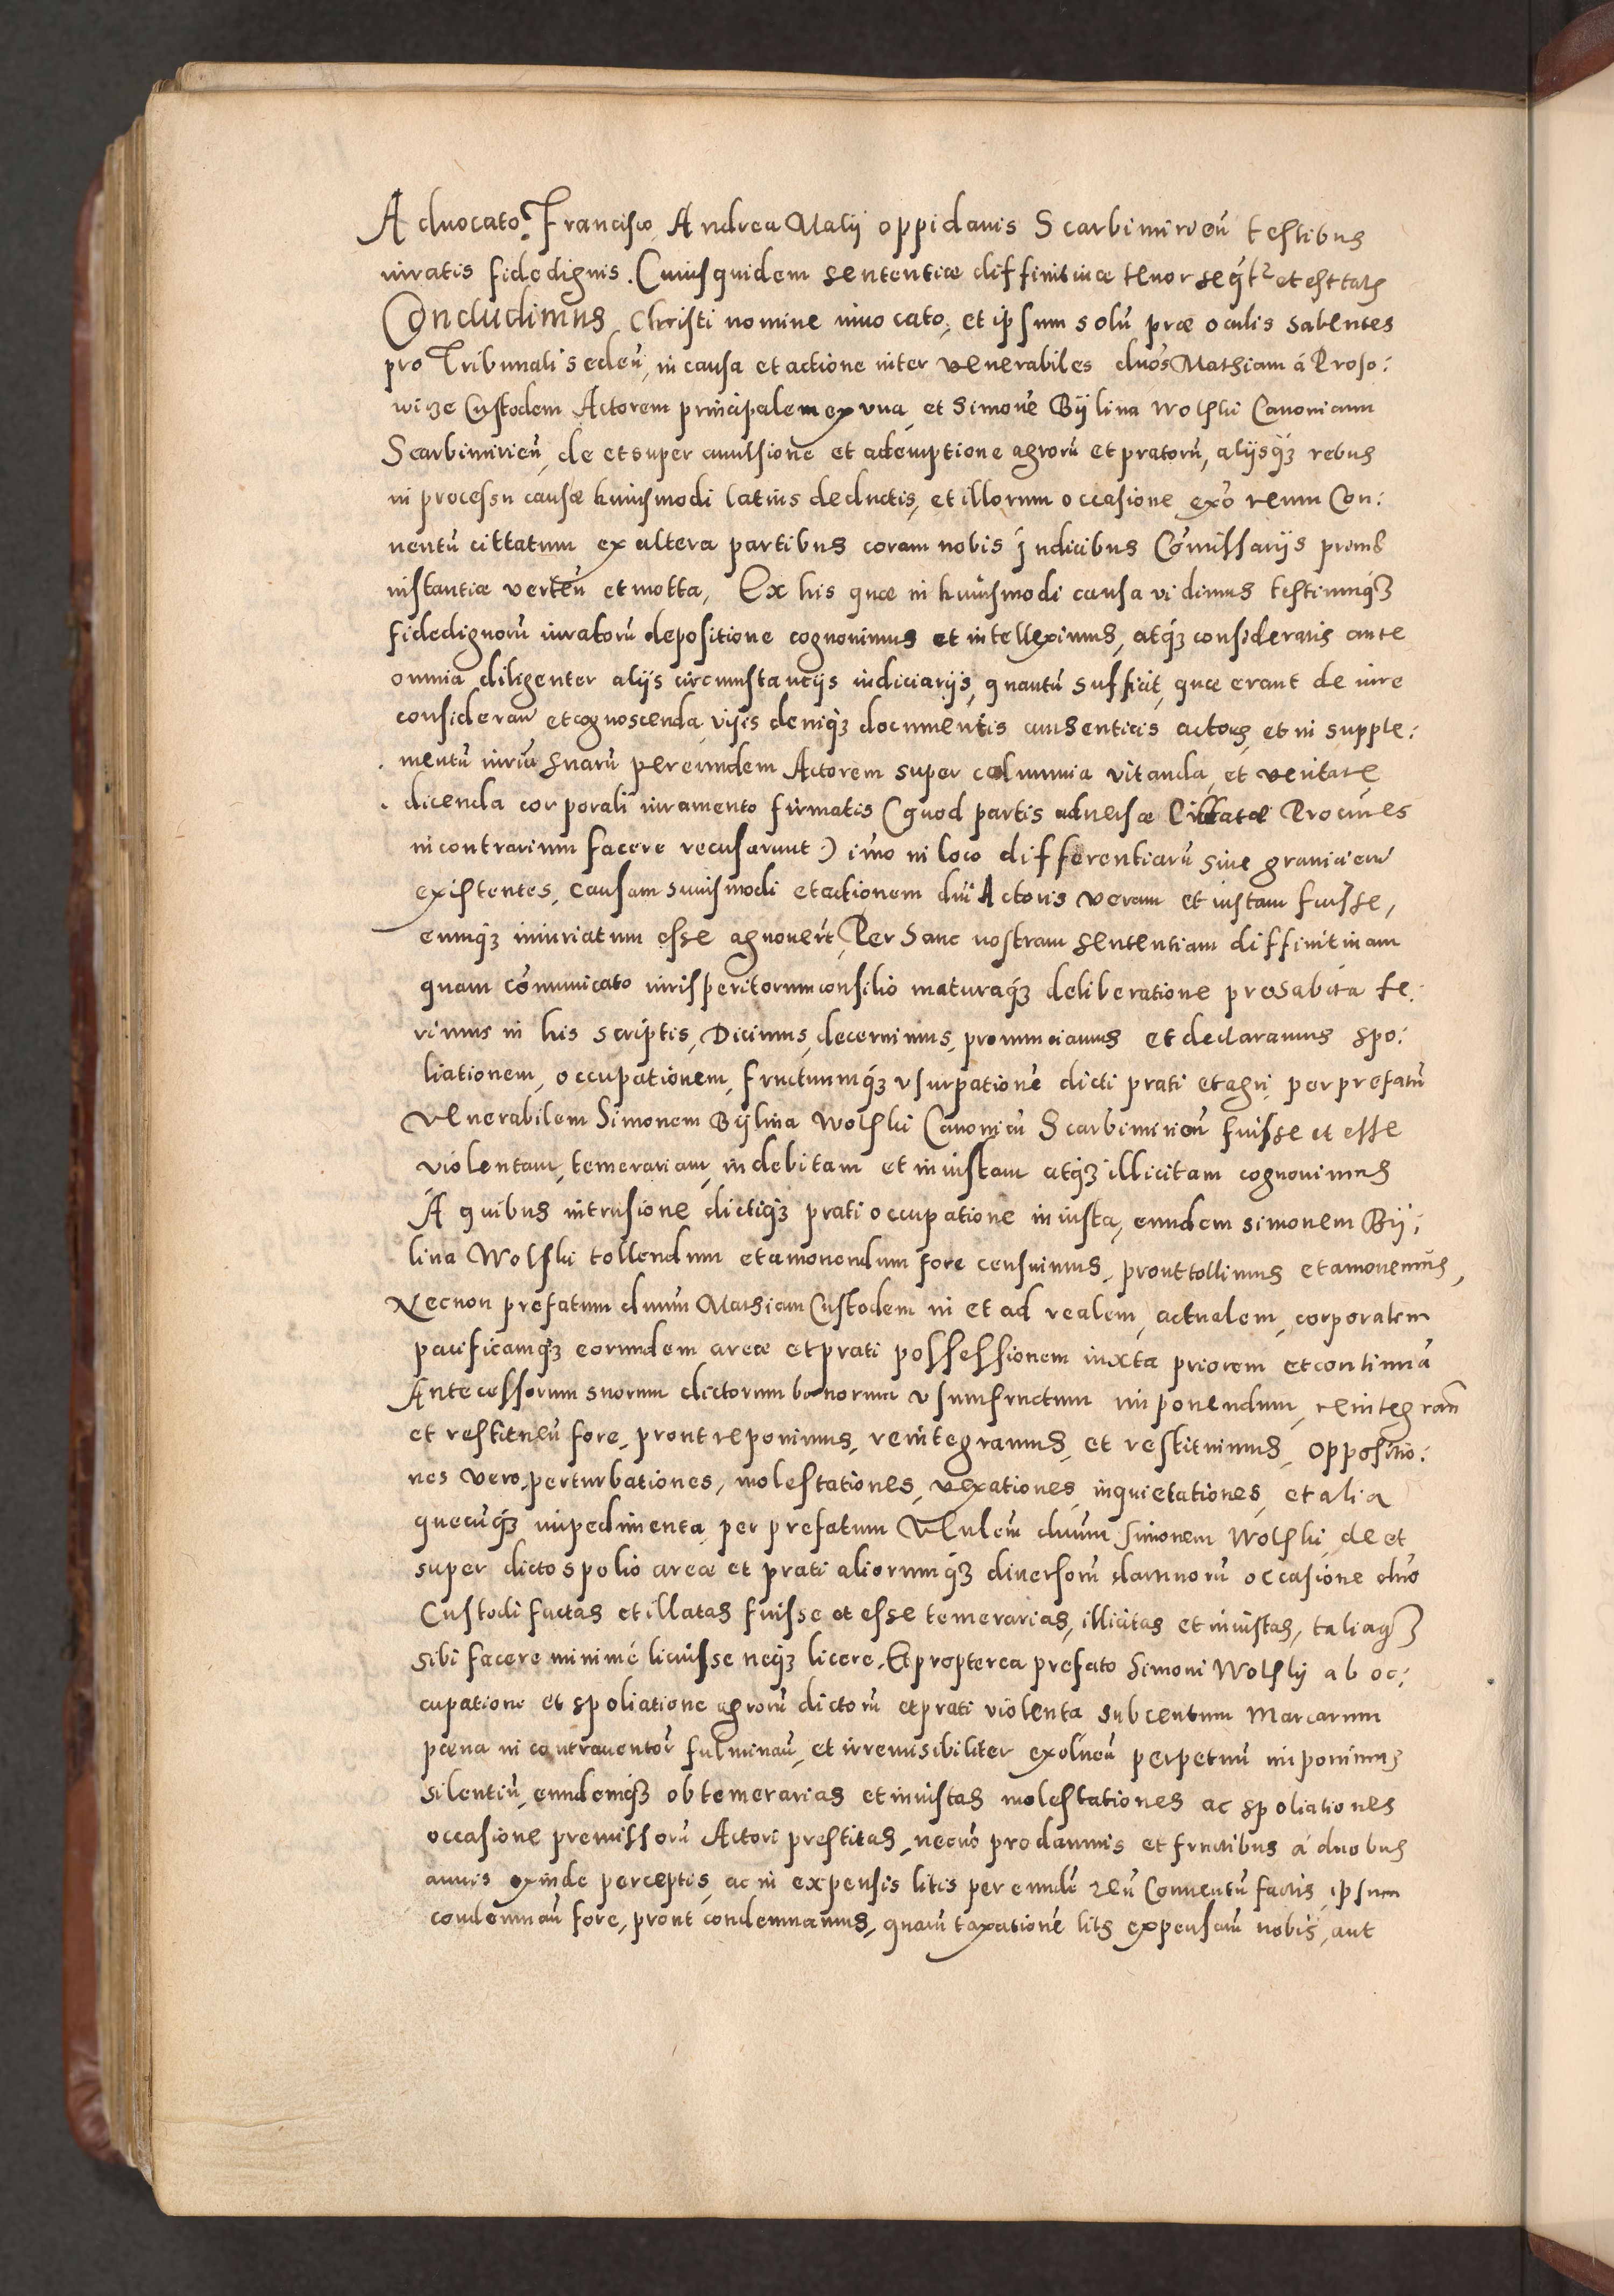 Aduocato, Francisco, Andrea Maly oppidanis Scarbimirień testibus
iuratis fidedignis. Cuius quidem sententiæ diffinitiuæ tenor seqt̃ et est talis
Concludimus, Christi nomine inuocato, et ipsum solū præ oculis habentes
pro Tribunali sedeń, in causa et actione inter venerabiles dnos Mathiam á Proso:
wize Custodem Actorem principalem ex vna, et Simonē Bijlina Wolski Canonicum
Scarbimirień, de et super auulsione et ademptione agrorū et pratorū, alijsq3 rebus
in processu causæ huiusmodi latius deductis, et illorum occasione exo reum Con:
uentū cittatum ex altera partibus coram nobis Judicibus Comissarijs primæ
instantiæ verteń et motta, Ex his quæ in huiusmodi causa vidimus testiumq3
fidedignorū iuratorū depositione cognouimus et intelleximus, atq3 consideratis ante
omnia diligenter alijs circumstancijs iudiciarijs, quantū sufficit, quæ erant de iure
considerań et cognoscenda, visis deniq3 documentis authenticis actoris, et in supple:
mentū iuriū suarū per eundem Actorem super calumnia vitanda, et veritate
dicenda corporali iuramento firmatis (quod partis aduersæ Cittatæ Procures
in contrarium facere recusarunt) imo in loco differentiarū siue graniciem
existentes, causam huiusmodi et actionem dni Actoris veram et iustam fuisse,
eumq3 iniuriatum esse agnouert, Per hanc nostram sententiam diffinitiuam
quam comunicato iurisperitorum consilio maturaq3 deliberatione prehabita fe:
rimus in his scriptis, Dicimus, decernimus, pronunciamus et declaramus spo:
liationem, occupationem, fructuumq3 vsurpationē dicti prati et agri, per prefatū
Venerabilem Simonem Bijlina Wolski Canonicū Scarbimirień fuisse et esse
violentam, temerariam, indebitam et iniustam atq3 illicitam cognouimus
A quibus intrusione dictiq3 prati occupatione iniusta, eundem Simonem Bij:
lina Wolski tollendum et amouendum fore censuimus, prout tollimus et amouemus,
Necnon prefatum dnum Mathiam Custodem in et ad realem, actualem, corporalem
pacificamq3 eorundem areæ et prati possessionem iuxta priorem et continuā
Antecessorum suorum dictorum bonorum vsumfructum imponendum, reintegrań
et restitueń fore, prout reponimus, reintegramus, et restituimus, oppositio:
nes vero, perturbationes, molestationes, vexationes, inquietationes, et alia
quecūq3 impedimenta per prefatum Venlem dnum Simonem Wolski, de et
super dicto spolio areæ et prati aliorumq3 diuersorū damnorū occasione dno
Custodi factas et illatas fuisse et esse temerarias, illicitas et iniustas, taliaq3
sibi facere minimé licuisse neq3 licere. Et propterea prefato Simoni Wolskij ab oc:
cupatione et spoliatione agrorū dictorū et prati violenta sub centum Marcarum
pæna in contrauentor̄ fulminań, et irremisibiliter exolueń perpetuū imponimus
silentiū, eundemq3 ob temerarias et iniustas molestationes ac spoliationes
occasione premissorū Actori prestitas, necno pro damnis et fructibus á duobus
annis exinde perceptis, ac in expensis litis per eundē reū Conuentū factis, ipsum
condemnań fore, prout condemnamus, quarū taxationē litis expensarū nobis, aut